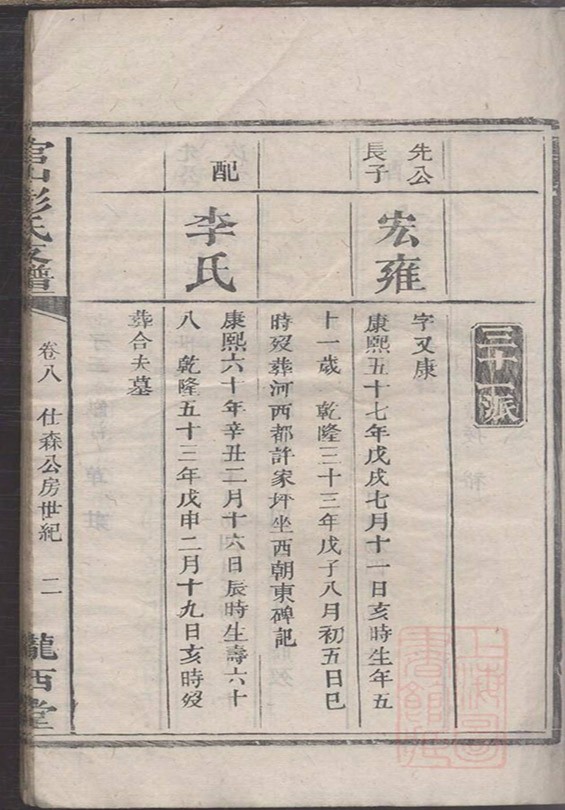 三十一派
先公
長子
宏雍
字又康
康熙五十七年戊戌七月十一日亥時生年五
十一歲 乾隆三十三年戊子八月初五日巳
時歿葬河西都許家坪坐西朝東碑記
配
李氏
康熙六十年辛丑二月十六日辰時生壽六十
八 乾隆五十三年戊申二月十九日亥時歿
葬合夫墓
彭氏支譜
卷八 仕森公房世紀 二
隴西堂
上海圖
書館藏